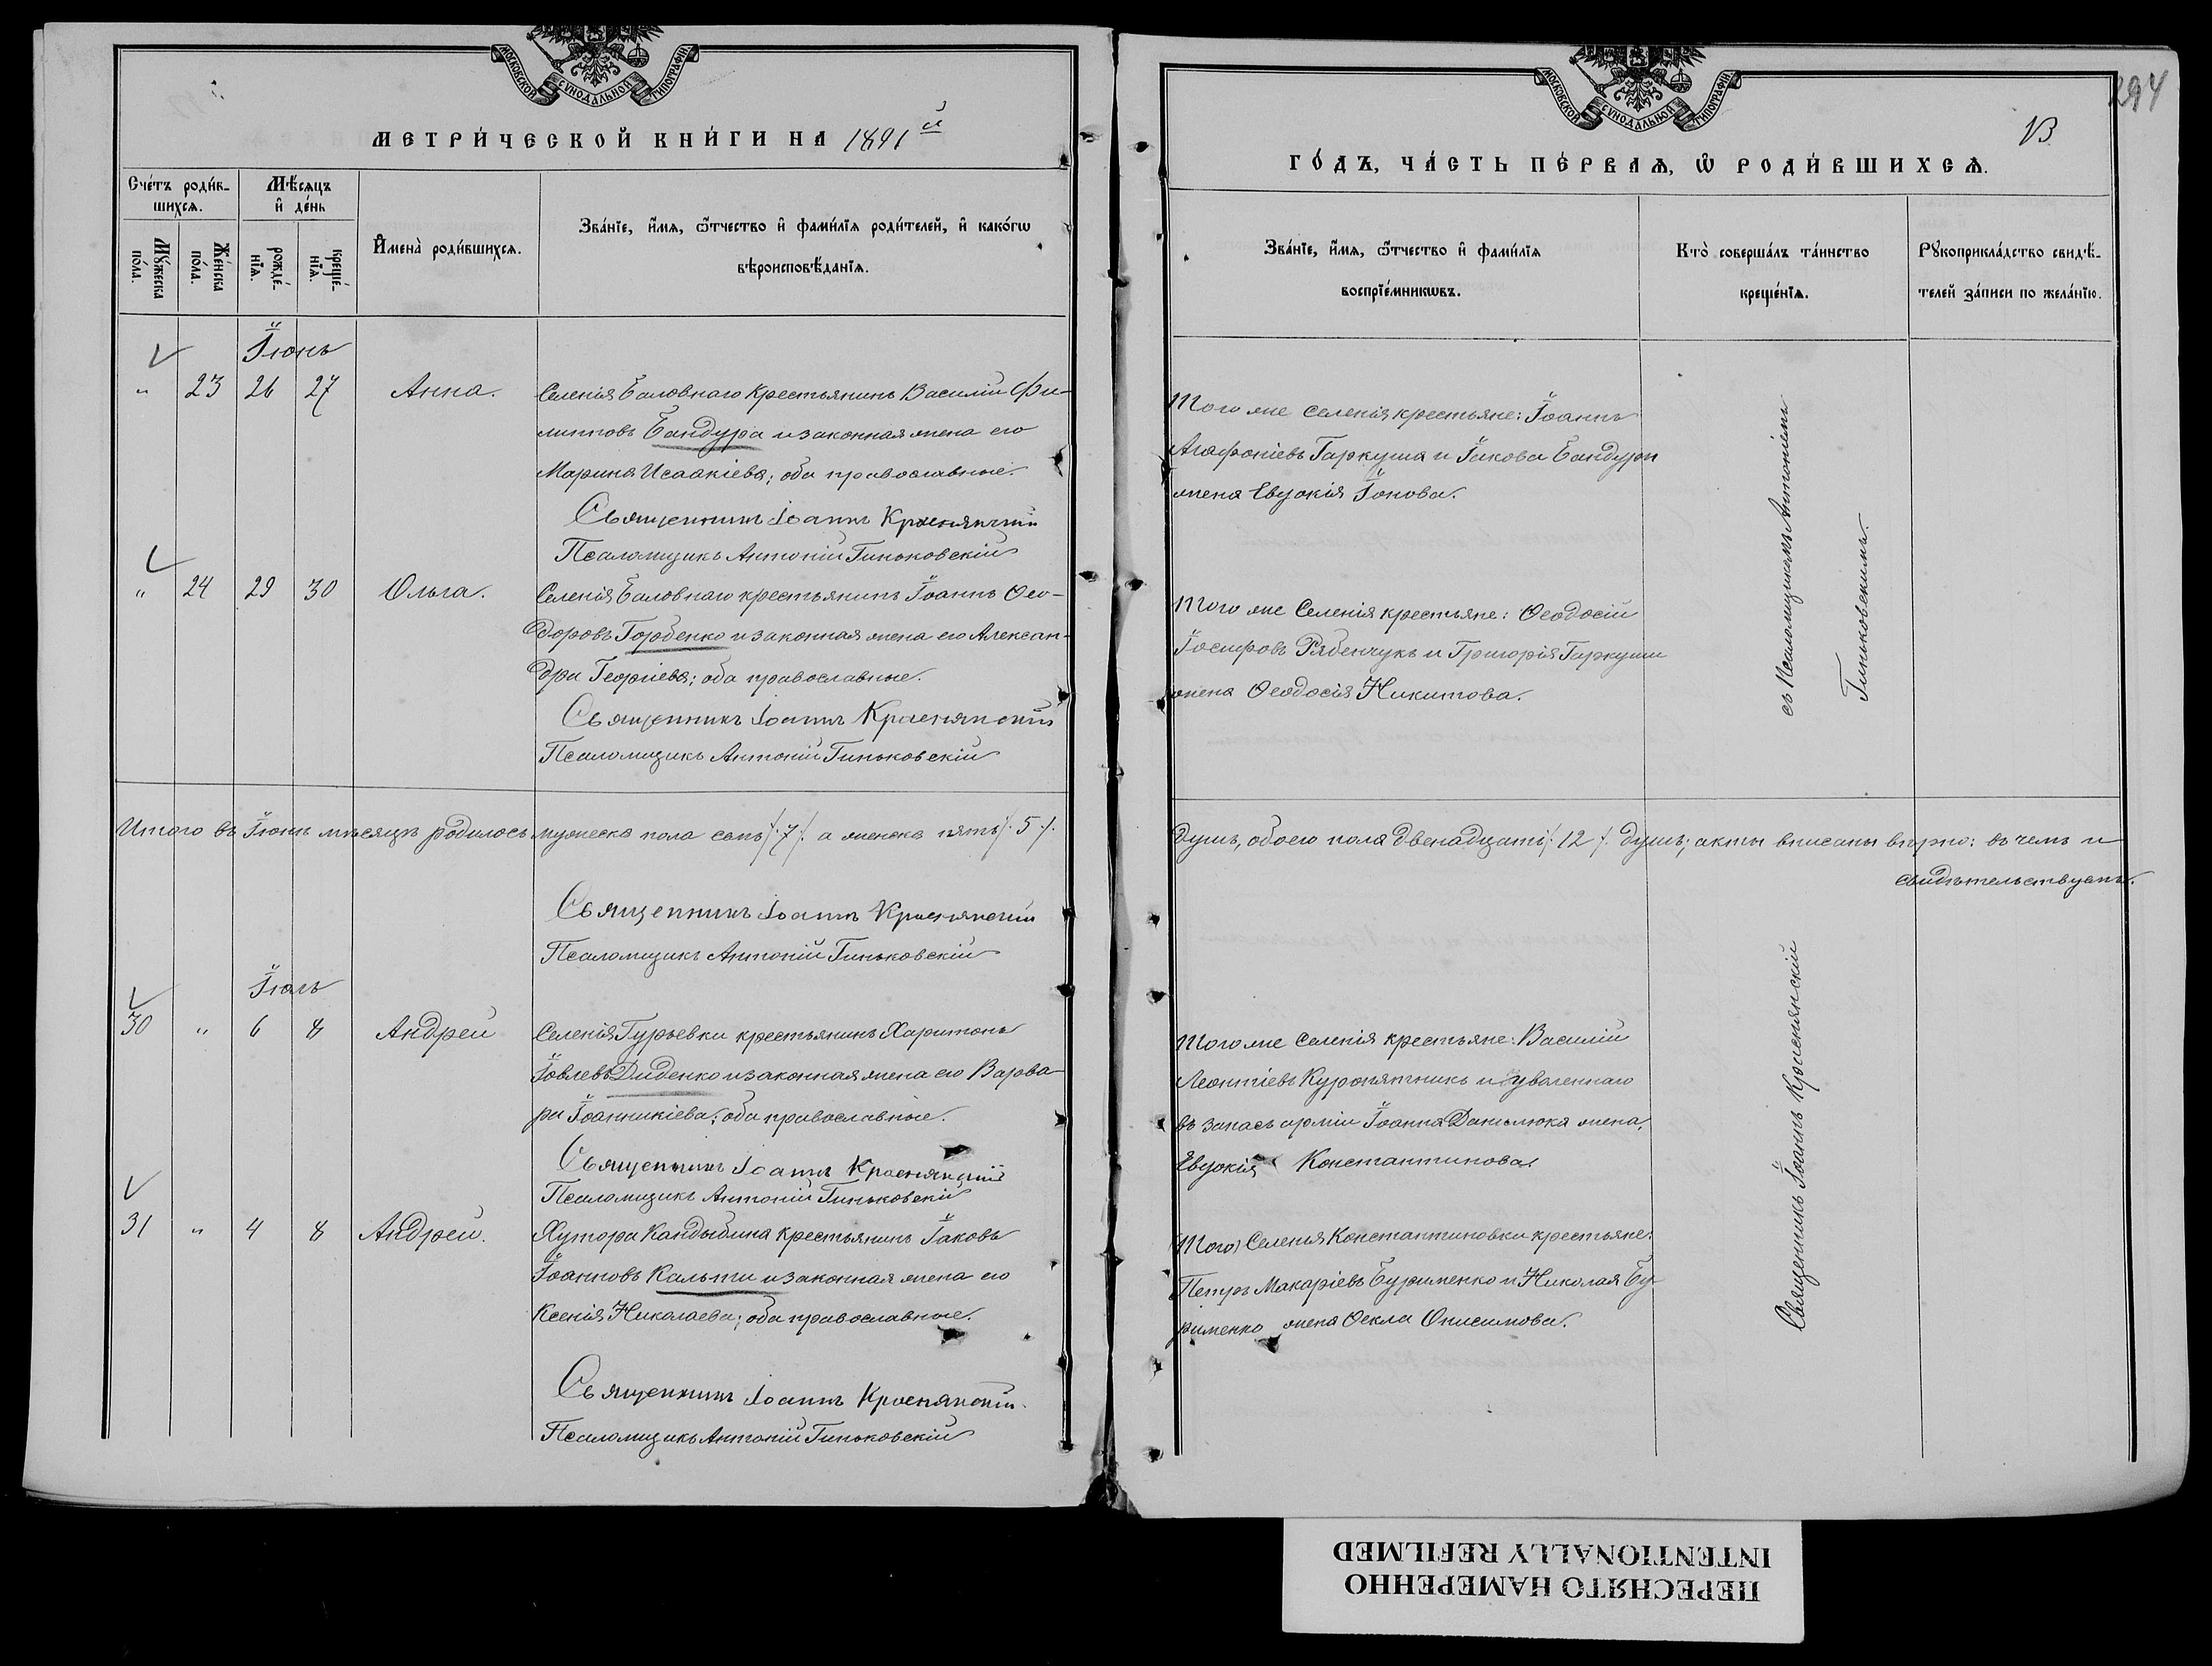 МОСКОВСКОЙ СѴНОДАЛЬНОЙ ТИПОГРАФІИ
МЕТРИ́ЧЕСКОЙ КНИ́ГИ НА 1891й
Сче́тъ роди́в-
шихсѧ.
Мѣ́сѧцъ
и҆ де́нь
Мꙋ́жеска
по́ла.
Же́нска
по́ла.
рожде́-
нїѧ.
креще́-
нїѧ.
И҆мена̀ роди́вшихсѧ.
Зва́нїе, и҆́мѧ, ѻ҆́тчество и҆ фами́лїѧ роди́телей, и҆ како́гѡ
вѣроисповѣ́данїѧ.
Іюнь
" 23 26 27 Анна. Селенія Баловнаго крестьянинъ Василій Фи-
липповъ Бандура и законная жена его
Марина Исаакіева; оба православные.
Священникъ Іоаннъ Красняпскій
Псаломщикъ Антоній Гиньковскій
" 24 29 30 Ольга. Селенія Баловнаго крестьянинъ Іоаннъ Ѳео-
доровъ Горбенко и законная жена его Алексан-
дра Георгіева; оба православные.
Священникъ Іоаннъ
Псаломщикъ Антоній Гиньковскій
Итого въ Іюнѣ мѣсяцѣ родилось мужеска пола семь /.7/. а женска пять /.5./.
Священникъ Іоаннъ
Псаломщикъ Антоній Гиньковскій
Іюль
30 " 6 8 Андрей Селенія Гурьевки крестьянинъ Харитонъ
Іовлевъ Диденко и законная жена его Варва-
ра Іоанникіева; оба православные.
Священникъ Іоаннъ
Псаломщикъ Антоній Гиньковскій
31 " 4 8 Андрей. Хутора Кандыбина крестьянинъ Іаковъ
Іоанновъ и законная жена его
Ксенія Николаева; оба православные.
Священникъ Іоаннъ
Псаломщикъ Антоній Гиньковскій
294
МОСКОВСКОЙ СѴНОДАЛЬНОЙ ТИПОГРАФІИ
ГО́ДЪ, ЧА́СТЬ ПЕ́РВАѦ, Ѽ РОДИ́ВШИХСѦ.
Зва́нїе, и҆́мѧ, ѻ҆́тчество и҆ фами́лїѧ
воспрїе́мникѡвъ.
Кто̀ соверша́лъ та́инство
креще́нїѧ.
Рꙋкоприкла́дство свидѣ́-
телей за́писи по жела́нїю.
Того же селенія крестьяне: Іоаннъ
Агафоніевъ Гаркуша и Іакова Бандуры
жена Евдокія Іонова.
Того же Селенія крестьяне: Ѳеодосій
Іосифовъ Рябенчукъ и Григорія Гаркуши
жена Ѳеодосія Никитова.
съ Псаломщикомъ Антоніемъ
Гиньковскимъ.
душъ, обоего пола двенадцать /.12/. душъ; акты вписаны вѣрно: въ чемъ и
свидѣтельствуемъ.
Того же Селенія крестьяне: Василій
Леонтіевъ Куропятникъ и уволеннаго
въ запасъ арміи Іоанна Данилюка жена,
Евдокія Константинова.
(Того) Селенія Константиновки крестьяне:
Петръ Макаріевъ Буряменко и Николая Бу-
ряменко жена Ѳекла Онисимова.
Священникъ Іоаннъ
ПЕРЕСНЯТО НАМЕРЕННО
INTENTIONALLY REFILMED